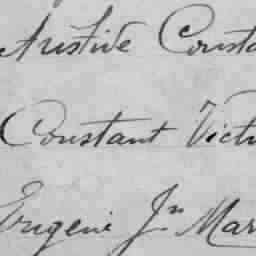 Aristide Consta
Constant Victo
Eugene Jn Mar